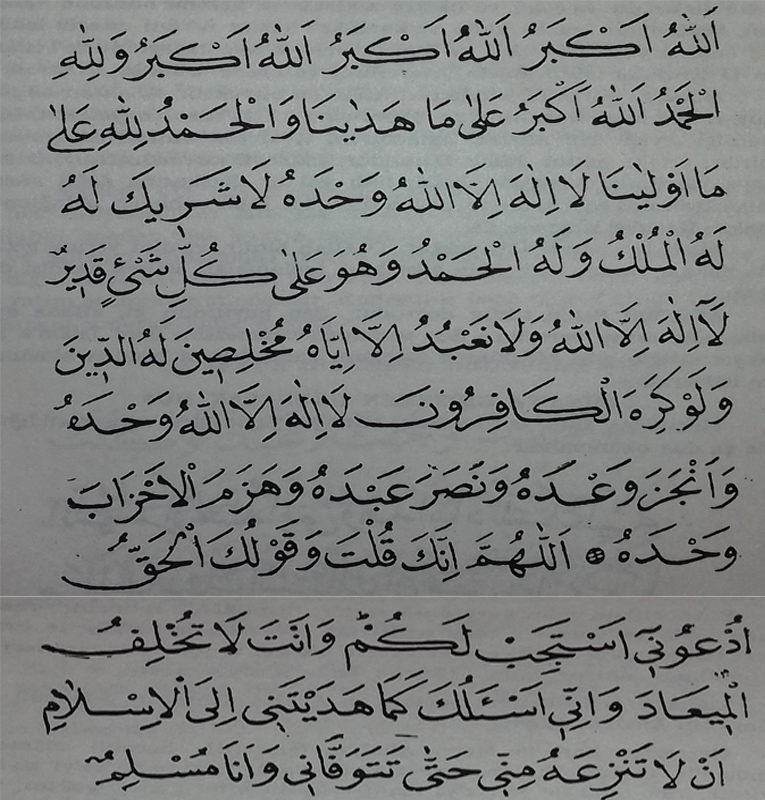 اَللهُ اَكْبَرُ اَللهُ اَكْبَرُ اَللهُ اَكْبَرُ وَلِلّٰهِ
الْحَمْدُ اَللهُ اَكْبَرُ عَلٰى مَا هَدٰينَا وَالْحَمْدُ لِلّٰهِ عَلٰى
مَا اَوْلٰينَا لَا اِلٰهَ اِلَّا اللهُ وَحْدَهُ لَا شَرِيكَ لَهُ
لَهُ الْمُلْكُ وَلَهُ الْحَمْدُ وَهُوَ عَلٰى كُلِّ شَىْءٍ قَدِيرٌ
لَآ اِلٰهَ اِلَّا اللهُ وَلَا نَعْبُدُ اِلَّا اِيَّاهُ مُخْلِصِينَ لَهُ الدِّينَ
وَلَوْ كَرِهَ الْكَافِرُونَ لَا اِلٰهَ اِلَّا اللهُ وَحْدَهُ
وَاَنْجَزَ وَعْدَهُ وَنَصَرَ عَبْدَهُ وَهَزَمَ الْاَحْزَابَ
وَحْدَهُ * اَللّٰهُمَّ اِنَّكَ قُلْتَ وَقَوْلُكَ الْحَقُّ
اُدْعُونِىٓ اَسْتَجِبْ لَكُمْ وَاَنْتَ لَا تُخْلِفُ
الْمِيعَادَ وَاِنِّى اَسْئَلُكَ كَمَا هَدَيْتَنِى اِلَى الْاِسْلَامِ
اَنْ لَا تَنْزِعَهُ مِنِّى حَتّٰى تَتَوَفَّانِى وَاَنَا مُسْلِمٌ